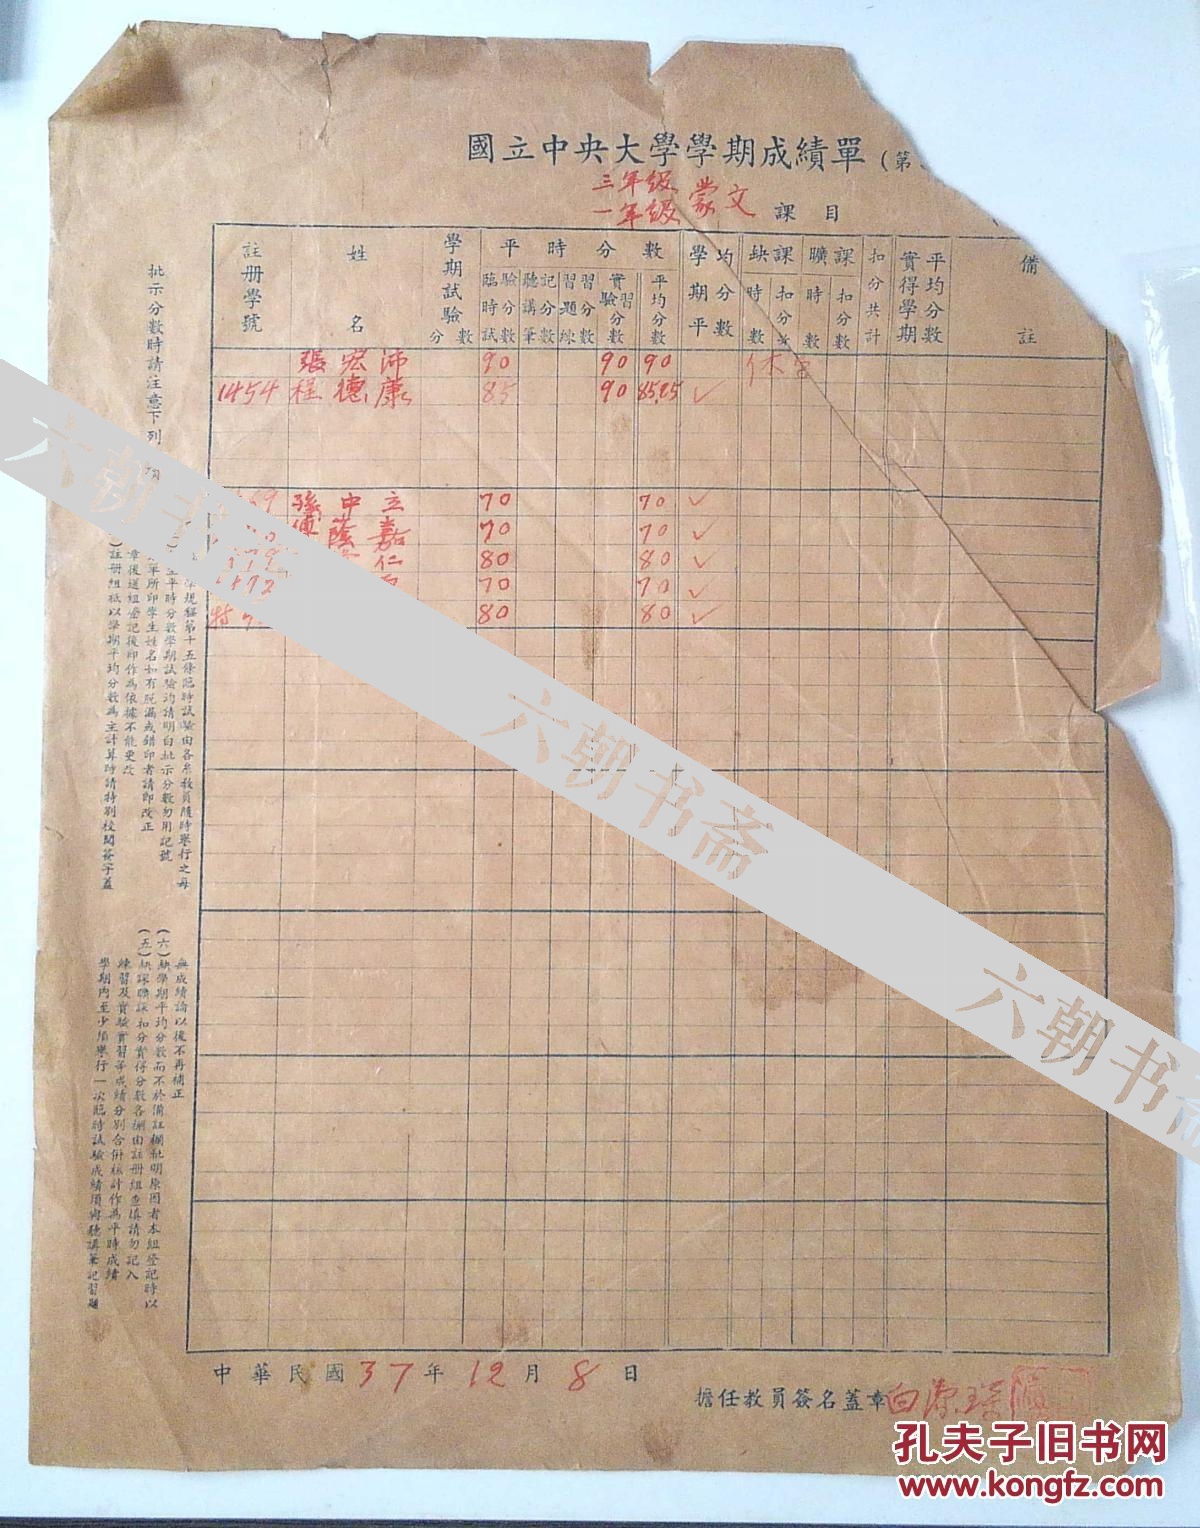 國立中央大學學期成績單(第
三年級
一年級 蒙文 課目
註册學號 姓名 學期試驗分數 平時分數 學期平均分數 缺課 曠課 扣分共計 實得學期平均分數 備註
臨時試驗分數 聽講筆記分數 習題練習分數 實驗實習分數 平均分數 時數 扣分數 時數 扣分數
張宏沛 90 90 90 休
1454 程德康 85 90 85.25 ✓
69 孫中立 70 70 ✓
傅蔭嘉 70 70 ✓
仁 80 80 ✓
70 70 ✓
特 80 80 ✓
批示分數時請注意下列
規程第十五條臨時試驗由各系教員隨時舉行之每
學期內至少須舉行一次臨時試驗成績須與聽講筆記習題
練習及實驗實習等成績分別合併核計作為平時成績
平時分數學期試驗均請明白批示分數勿用記號
單所印學生姓名如有脫漏或錯印者請即改正
章後送組登記後即作為依據不能更改
註册組祇以學期平均分數為主計算時請特別校閱簽字蓋
(五)缺課曠課扣分實得分數各欄由註册組查填請勿記入
(六)缺學期平均分數而不於備註欄批明原因者本組登記時以
無成績論以後不再補正
中華民國37年12月8日
擔任教員簽名蓋章
六朝书斋
六朝书斋
六朝书斋
孔夫子旧书网
www.kongfz.com